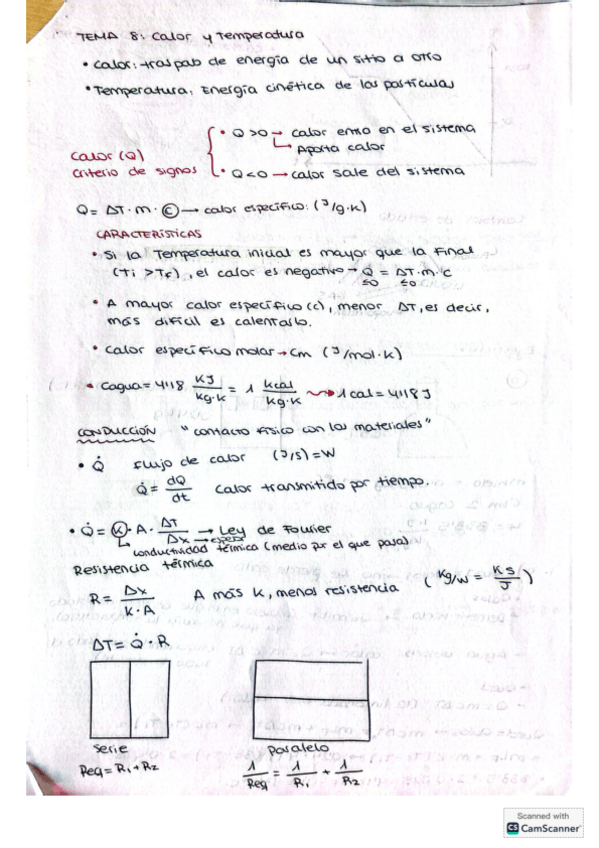 TEMA 8: Calor y Temperatura
• Calor: traspab de energía de un sitio a otro
• Temperatura: Energía cinética de las partículas
Calor (Q)
criterio de signos
• Q>0 → calor entra en el sistema
↳ Aporta calor
• Q<0 → calor sale del sistema
Q = ΔT·m·c → calor específico: (J/g·k)
CARACTERÍSTICAS
• Si la Temperatura inicial es mayor que la final
(Ti >TF), el calor es negativo → Q = ΔT·m·c
≤0 ≤0
• A mayor calor específico (c), menor ΔT, es decir,
más difícil es calentarlo.
• Calor específico molar → Cm (J/mol·k)
• Cagua = 4'18 KJ/kg·k = 1 kcal/kg·k ⇝ 1 cal = 4'18 J
CONDUCCIÓN "contacto físico con los materiales"
• Q̇ Flujo de calor (J/s) = W
Q̇ = dQ/dt calor transmitido por tiempo.
• Q̇ = k · A · ΔT/Δx → Ley de Fourier
→ espesor
↳ conductividad térmica (medio por el que pasa)
Resistencia térmica
R = Δx/k·A A más k, menos resistencia (Kg/W = K s/J)
ΔT = Q̇ · R
Serie Paralelo
Req = R1 + R2 1/Req = 1/R1 + 1/R2
Scanned with
CS CamScanner